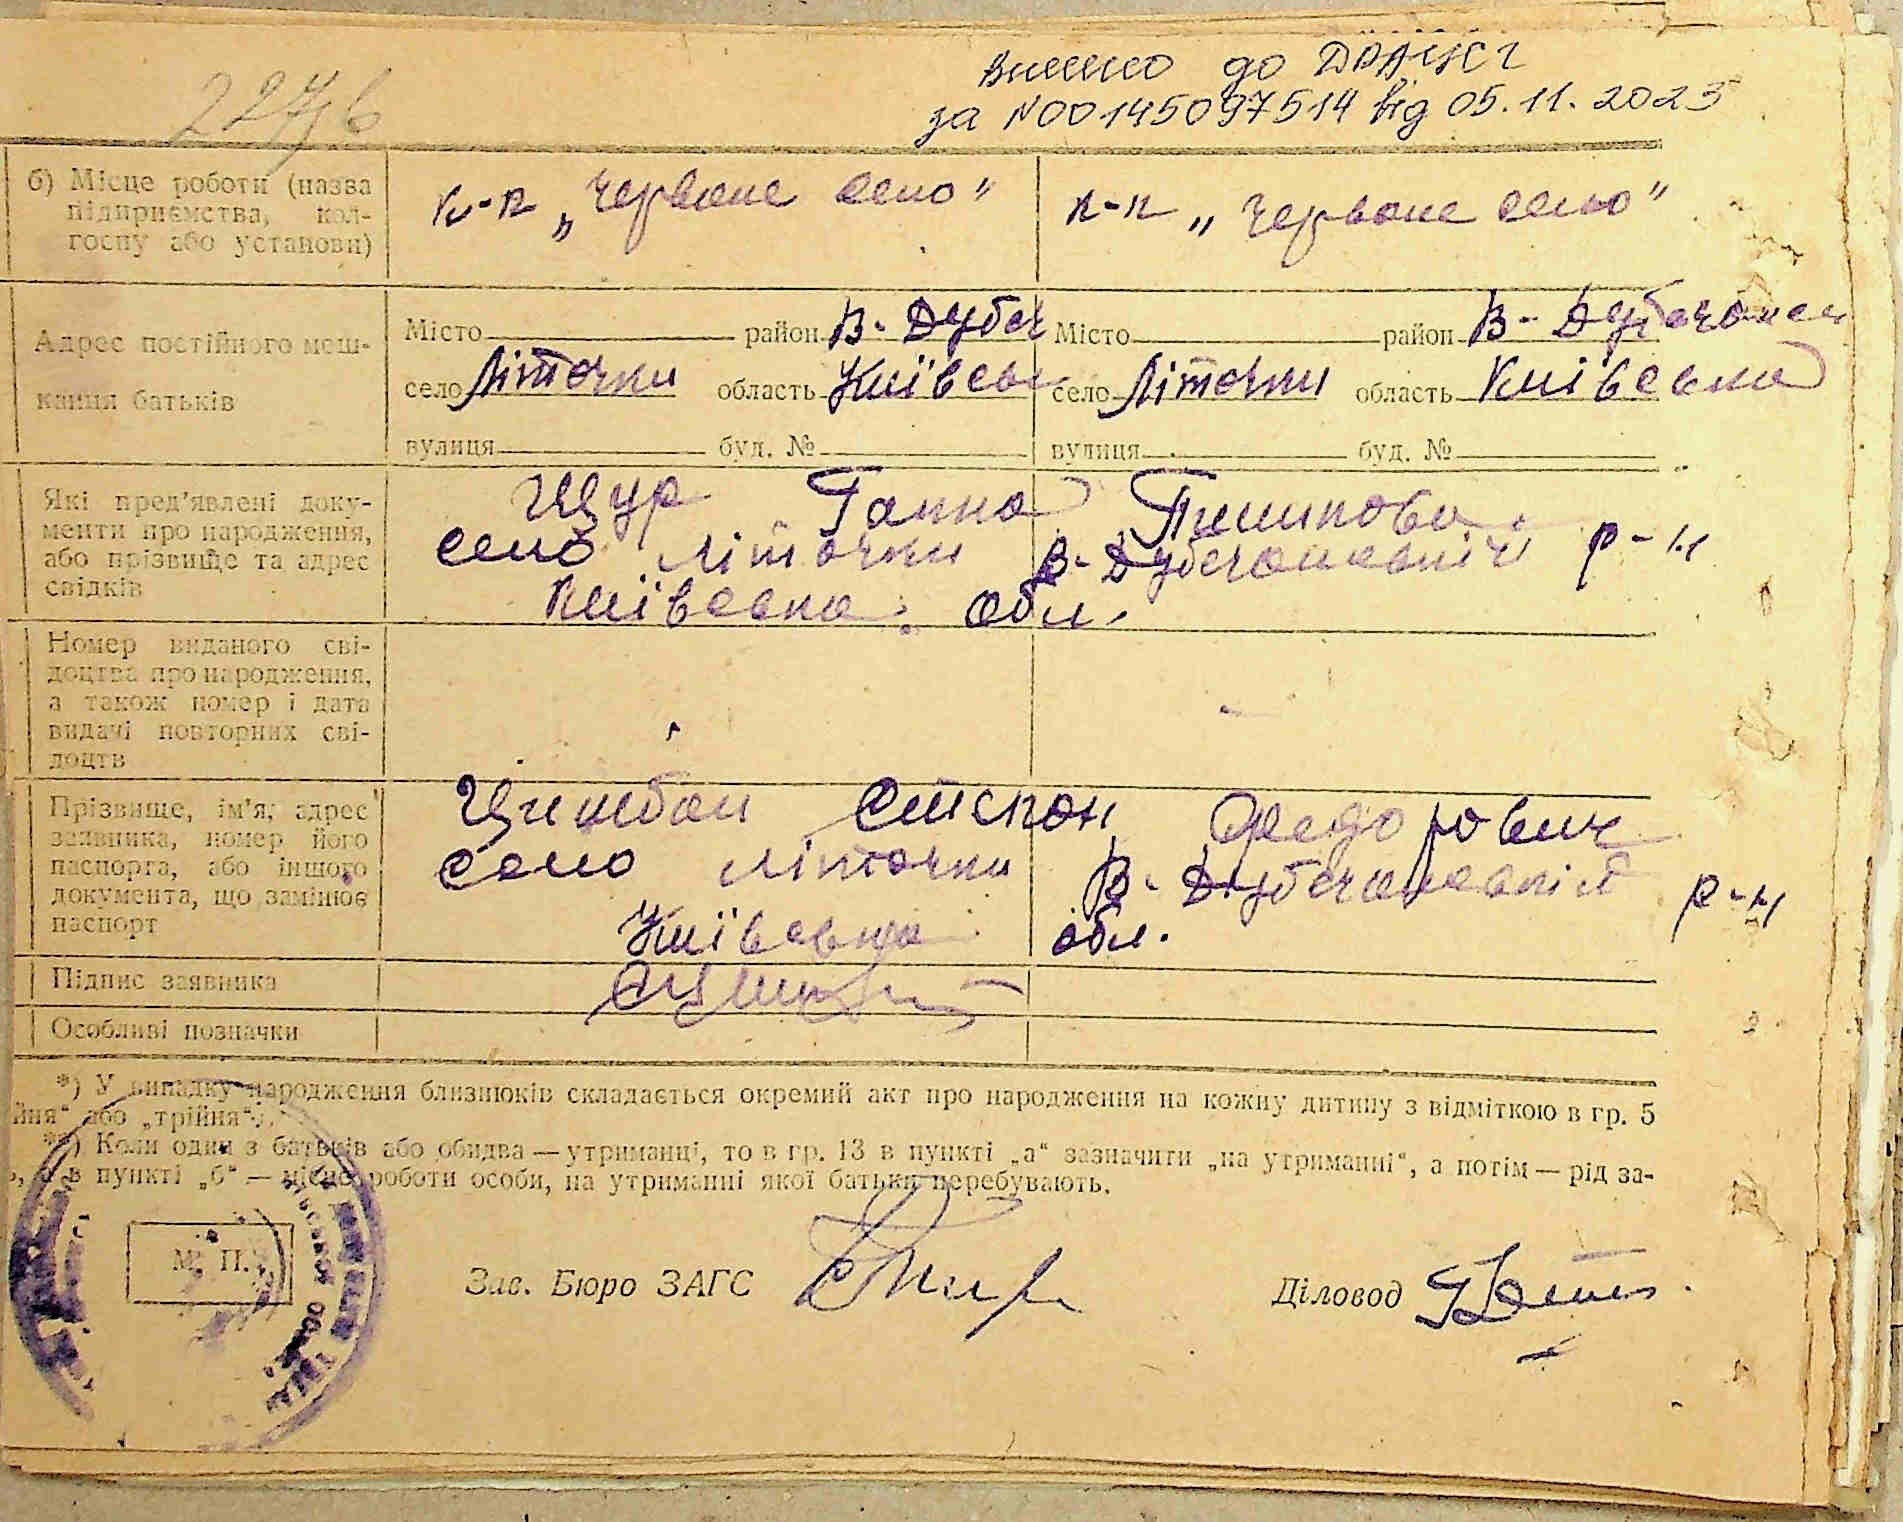 внесено до ДРАЦСГ
за №00145097514 від 05.11.2023
227зв
б) Місце роботи (назва
підприємства, кол-
госпу або установи)
к-п „Червоне село"
к-п „Червоне село"
Адрес постійного меш-
кання батьків
Місто район В-Дубеч
село Літочки область Київсь
вулиця буд. №
Місто район В-Дубечанськ
село Літочки область Київська
вулиця буд. №
Які пред'явлені доку-
менти про народження,
або прізвище та адрес
свідків
Щур Ганна
село Літочки В-Дубечанський р-н
Київська обл.
Номер виданого сві-
доцтва про народження,
а також номер і дата
видачі повторних сві-
доцтв
Прізвище, ім'я, адрес
заявника, номер його
паспорта, або іншого
документа, що замінює
паспорт
Цимбал Степан Федорович
село Літочки В-Дубечанський р-н
Київська обл.
Підпис заявника
Особливі позначки
*) У випадку народження близнюків складається окремий акт про народження на кожну дитину з відміткою в гр. 5
йня" або „трійня").
**) Коли один з батьків або обидва — утриманці, то в гр. 13 в пункті „а" зазначити „на утриманні", а потім — рід за-
, а в пункті „б" — місце роботи особи, на утриманні якої батьки перебувають.
М. П.
Зав. Бюро ЗАГС
Діловод